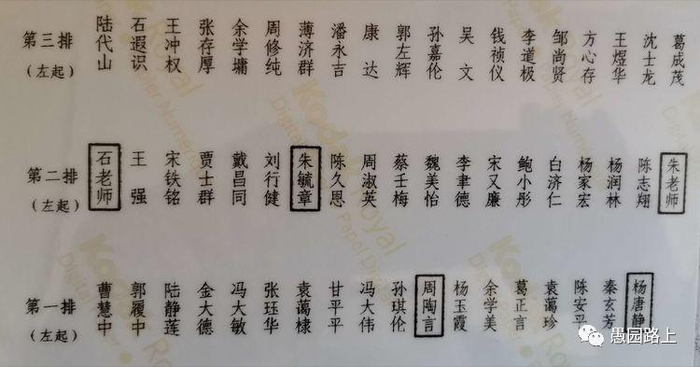 第三排（左起） 陆代山 石遐识 王冲权 张存厚 余学墉 周修纯 薄济群 潘永吉 康达 郭左辉 孙嘉伦 吴文 钱祯仪 李道极 邹尚贤 方心存 王煜华 沈士龙 葛成茂
第二排（左起） 石老师 王强 宋铁铭 贾士群 戴昌同 刘行健 朱毓章 陈久恩 周淑英 蔡壬梅 魏美怡 李聿德 宋又廉 鲍小彤 白济仁 杨家宏 杨润林 陈志翔 朱老师
第一排（左起） 曹慧中 郭履中 陆静莲 金大德 冯大敏 张珏华 袁蔼棣 甘平平 冯大伟 孙琪伦 周陶言 杨玉霞 余学美 葛正言 袁蔼珍 陈安平 秦玄芳 杨唐静
Kodak Royal
Digital Paper
愚园路上